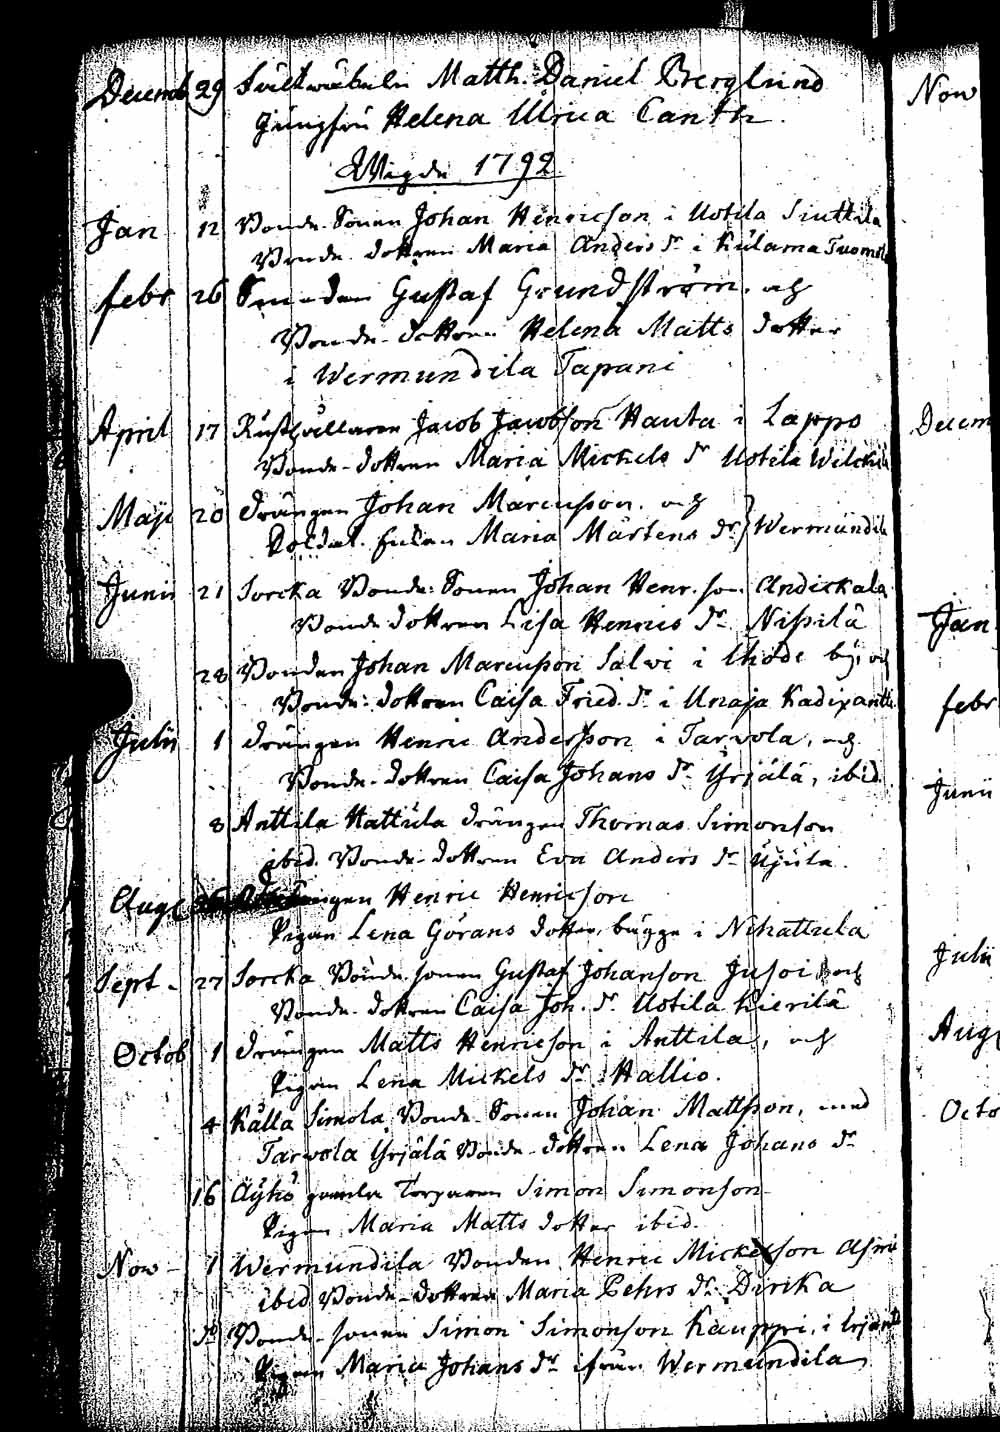 Decemb 29 Fältwäbeln Matth. Daniel Berglund
Jungfru Helena Ulrica Canth.
Wigde 1792
Jan 12 Bonde-Sonen Johan Henricson i Uotila Sinttila
Bonde-dottren Maria Anders dr i Kulama Tuomola
Febr 26 Smeden Gustaf Grundström. och
Bonde-dottren Helena Matts dotter
i Wermundila Tapani
April 17 Rusthållaren Jacob Jacobson Hauta i Lappo
Bonde-dottren Maria Mickels dr Uotila Wilckilä
Maji 20 drängen Johan Marcusson. och
Soldat. Enkan Maria Mårtens dr } Wermundila
Junii 21 Sorcka Bonde-Sonen Johan Henr. son Andickala
Bonde dottren Lisa Henrics dr Nissilä
28 Bonden Johan Marcusson Salwi i Ihode by, och
Bonde-dottren Caisa Fried. dr i Unaja Kadixantti
Julii 1 drängen Henric Andersson i Tarvola, och
Bonde-dottren Caisa Johans dr Yrjälä, ibid
8 Anttila Hattula drängen Thomas Simonson
ibid. Bonde-dottren Eva Anders dr Ujula
Aug drängen Henric Henricson
Pigan Lena Görans dotter, bägge i Nihattula
Sept - 27 Sorcka Bonde-sonen Gustaf Johanson Jusoi, och
Bonde-dottren Caisa Joh. dr Uotila Kierilä
Octob 1 drängen Matts Henricson i Anttila, och
Pigan Lena Mickels dr Hallio.
4 Kålla Simola Bonde-Sonen Johan Mattsson, med
Tarvola Yrjälä Bonde-dottren Lena Johans dr
16 Äyhö gamla Torparen Simon Simonson
Pigan Maria Matts dotter ibid.
Now - 1 Wermundila Bonden Henric Mickelson
ibid Bonde-dottren Maria Pehrs dr Dirika
do Bonde-sonen Simon Simonson Kauppi, i
Pigan Maria Johans dr ifrån Wermundila
Now
Decem
Jan
febr
Junii
Julii
Aug
Octo